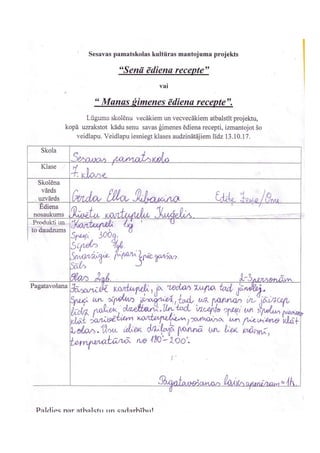 Sesavas pamatskolas kultūras mantojuma projekts
"Senā ēdiena recepte"
vai
" Manas ģimenes ēdiena recepte".
Lūgums skolēnu vecākiem un vecvecākiem atbalstīt projektu,
kopā uzrakstot kādu senu savas ģimenes ēdiena recepti, izmantojot šo
veidlapu. Veidlapu iesniegt klases audzinātājiem līdz 13.10.17.
Skola Sesavas pamatskola
Klase 7. klase
Skolēna vārds uzvārds Gerda Ella
Ēdiena nosaukums Rīvētu kartupeļu Kugelis.
Produkti un to daudzums Kartupeļi 1kg
Speķi 300g.
Sīpols 2gb.
Smaržīgie pipari garšas.
Sāls
Olas 2gb. 2-3 personām
Pagatavošana Jāsarīvē kartupeļi, ja rodas zupa tad jānolej.
Speķi un sīpolus jāsagriež, tad uz pannas ir jāizcep
līdz paliek dzelteni. Un tad izcepto speķi un sīpolus
klāt sarīvētiem kartupeļiem, samaisa un pievieno klāt
2 olas. Visu ieliek dziļajā pannā un liek krāsnī,
temperatūrā no 180°-200°.
Pagatavošanas laiks apmēram - 1h.
Paldies par atbalstu un sadarbību!